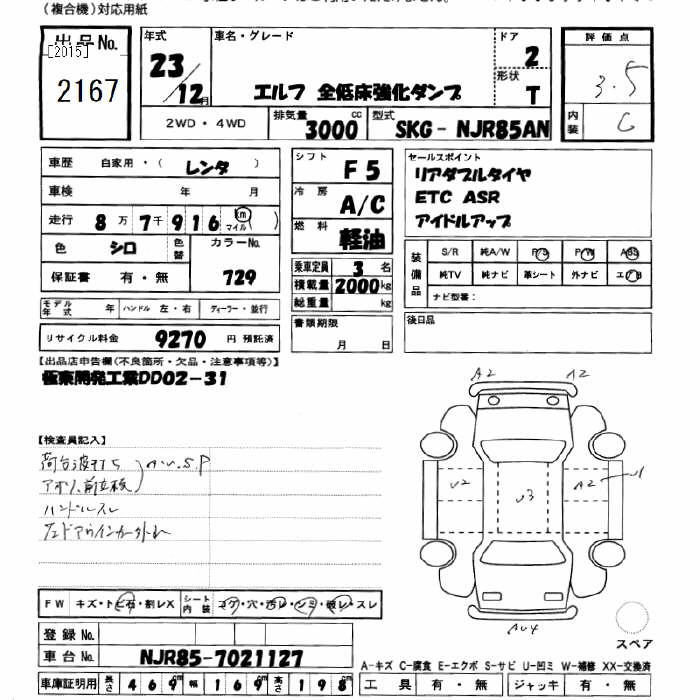 (複合機)対応用紙
出品No.
[2015]
2167
年式
23/12月
車名・グレード
エルフ 全低床強化ダンプ
ドア
2
形状
T
評価点
3.5
内装
C
2WD・4WD
排気量
3000cc
型式
SKG- NJR85AN
車歴 自家用・( レンタ )
車検 年 月
走行 8万7千916 km マイル
色 シロ 色替 カラーNo. 729
保証書 有・無
モデル年式 年 ハンドル 左・右 ディーラー・並行
リサイクル料金 9270 円 預託済
シフト F5
冷房 A/C
燃料 軽油
乗車定員 3 名
積載量 2000 kg
総重量 kg
書類期限
月 日
セールスポイント
リアダブルタイヤ
ETC ASR
アイドルアップ
装備品
S/R 純A/W P/S P/W ABS
純TV 純ナビ 革シート 外ナビ エアB
ナビ型番:
後日品
【出品店申告欄(不良箇所・欠品・注意事項等)】
極東開発工業DD02-31
【検査員記入】
荷台波打S
アオリ、前立板
A.U.S.P
ハンドルスレ
左ドアウインカー外レ
A2 A2
U2 U3 A2 U1
AU4
スペア
FW キズ・トビ石・割レX シート内装 コゲ・穴・汚レ・シミ・破レ・スレ
登録No.
車台No. NJR85-7021127
車庫証明用 長さ 469cm 幅 169cm 高さ 198cm
A-キズ C-腐食 E-エクボ S-サビ U-凹ミ W-補修 XX-交換済
工具 有・無 ジャッキ 有・無